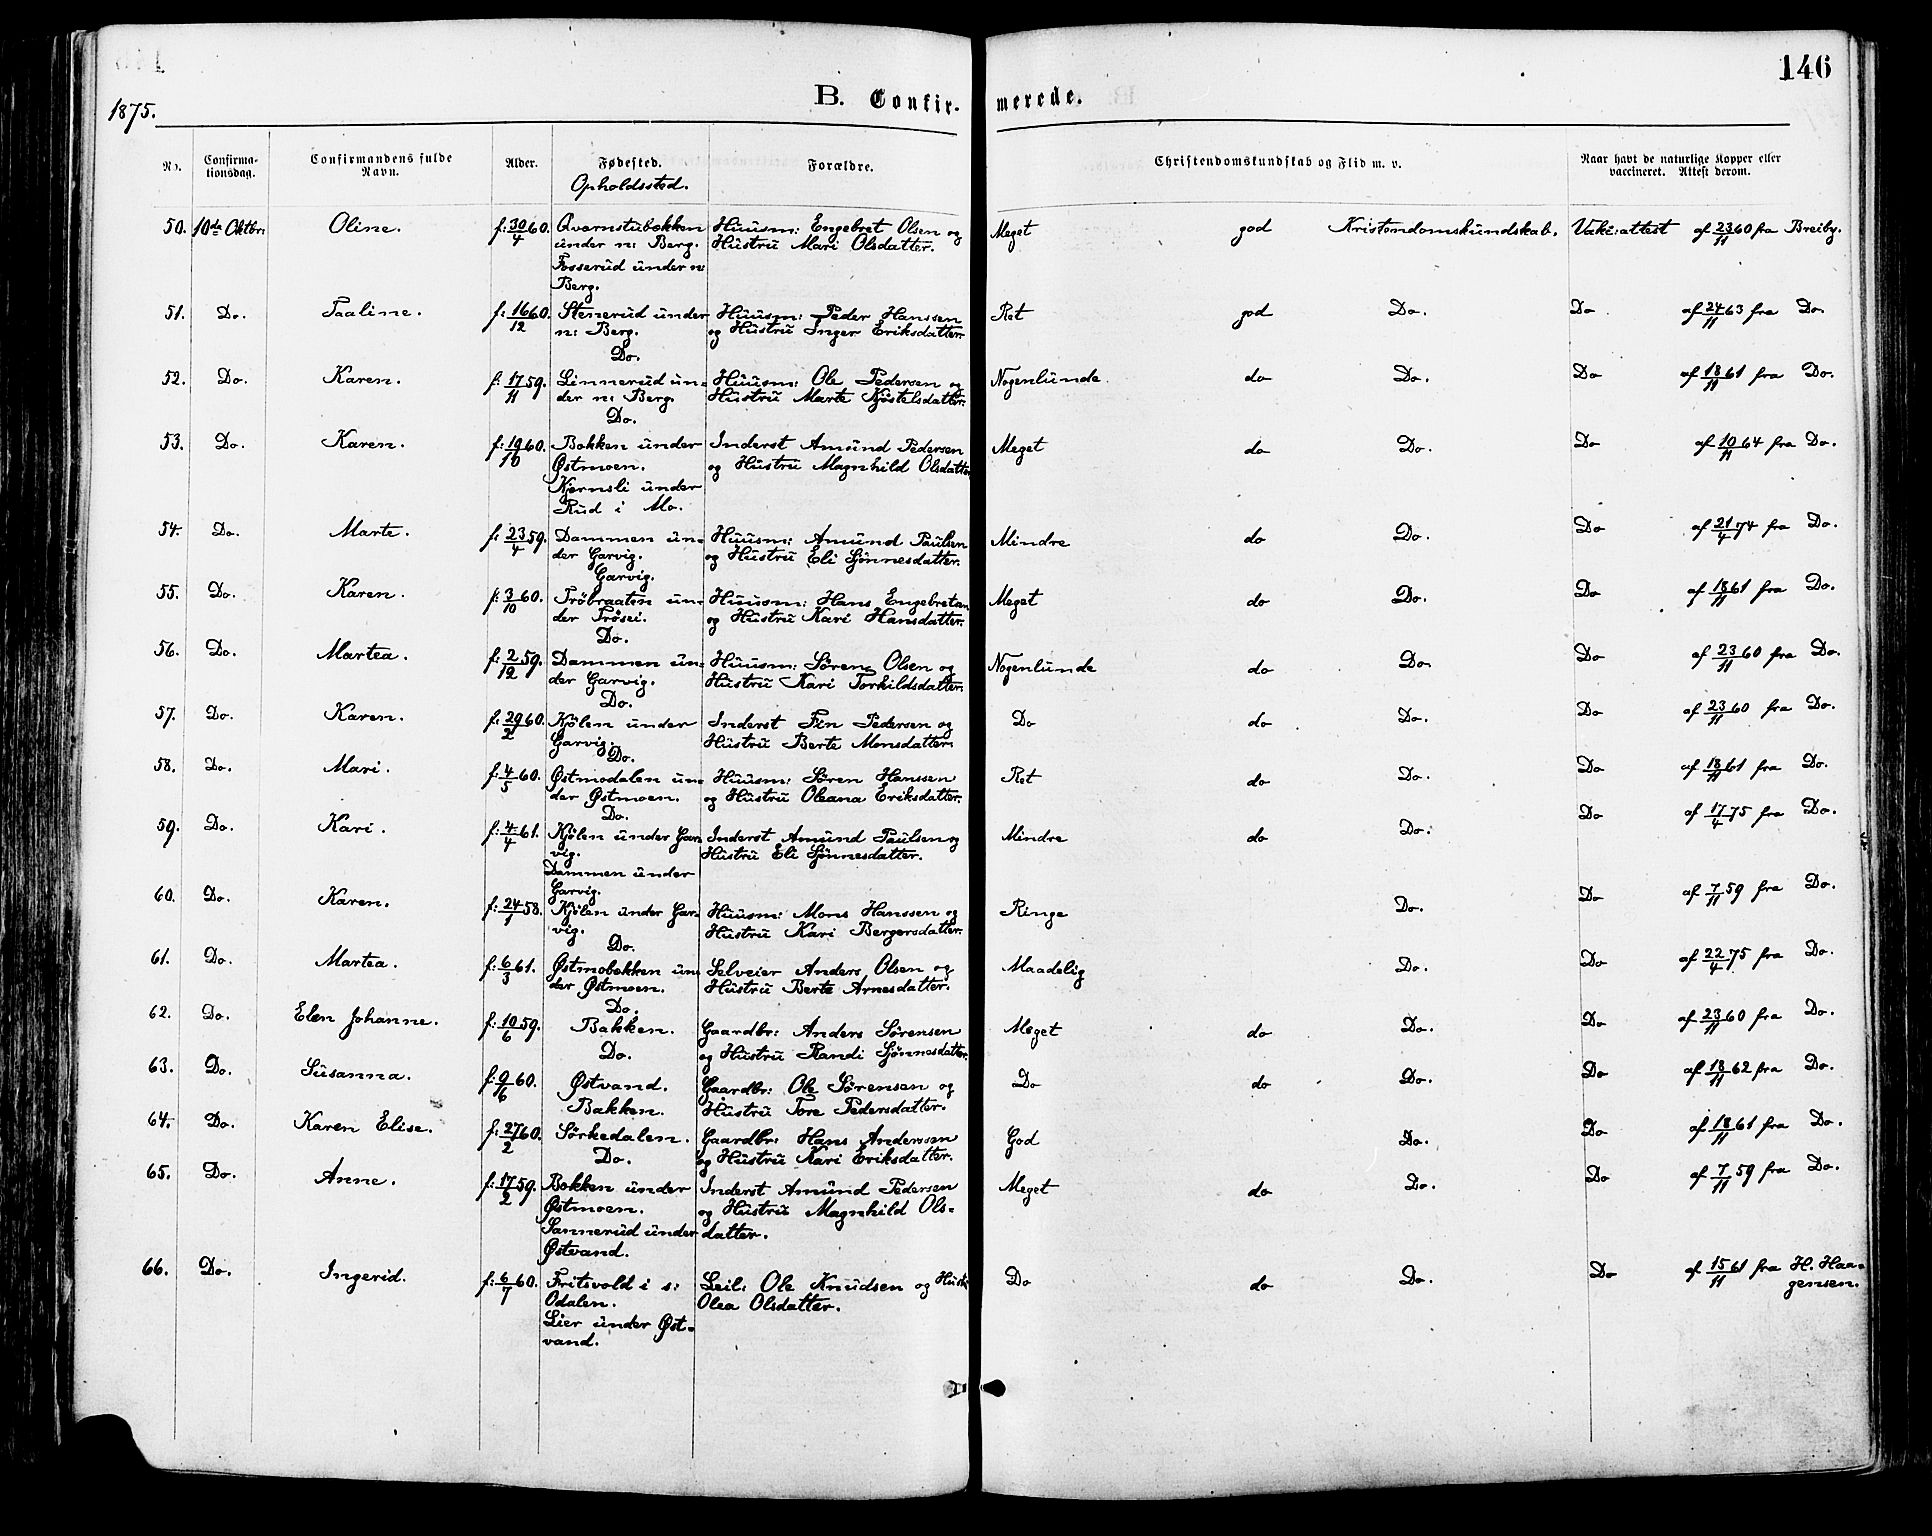 146
1875.
B. Confir- merede.
No.
Confirma-
tionsdag.
Confirmandens fulde
Navn.
Alder.
Fødested.
Opholdssted.
Forældre.
Christendomskundskab og Flid m. v.
Naar havt de naturlige Kopper eller
vaccineret. Attest derom.
50. 10de Oktbr: Oline. f: 30/4 60. Qvernstubakken Huusm: Engebret Olsen og Meget god Kristendomskundskab. Vakc: attest af 23/11 60 fra Breiby.
under n: Berg. Hustru Mari Olsdatter.
Fosserud under n:
Berg.
51. Do. Paaline. f: 16/12 60. Stenerud under Huusm: Peder Hanssen Ret god Do. Do af 24/11 63 fra Do.
n: Berg. og Hustru Inger Eriksdatter.
Do.
52. Do. Karen. f: 17/11 59. Linnerud un- Huusm: Ole Pedersen og Nogenlunde do Do. Do af 18/11 61 fra Do.
der n: Berg. Hustru Marte Kjøstelsdatter.
Do.
53. Do. Karen. f: 19/10 60. Bakken under Inderst Amund Pedersen Meget do Do. Do af 10/11 64 fra Do.
Østmoen. og Hustru Magnhild Olsdatter
Kjernsli under
Rud i Mo.
54. Do. Marte. f: 23/4 59. Dammen un- Huusm: Amund Paulsen Mindre do Do. Do af 21/4 74 fra Do.
der Garvig. og Hustru Eli Sjønnesdatter.
Garvig.
55. Do. Karen. f: 3/10 60. Frøbraaten un- Huusm: Hans Engebretsen Meget do Do. Do af 18/11 61 fra Do.
der Frøsei. og Hustru Kari Hansdatter.
Do.
56. Do. Martea. f: 2/12 59. Dammen un- Huusm: Søren Olsen og Nogenlunde do Do. Do af 23/11 60 fra Do.
der Garvig. Hustru Kari Torkildsdatter.
Do.
57. Do. Karen. f: 29/2 60. Kjølen under Inderst Fin Pedersen og Do do Do. Do af 23/11 60 fra Do.
Garvig. Hustru Berte Monsdatter.
Do.
58. Do. Mari. f: 4/5 60. Østmodalen un- Huusm: Søren Hanssen Ret do Do. Do af 18/11 61 fra Do.
der Østmoen. og Hustru Oleana Eriksdatter.
Do.
59. Do. Kari. f: 4/4 61. Kjølen under Gar- Inderst Amund Paulsen og Mindre do Do. Do af 17/4 75 fra Do.
vig. Hustru Eli Sjønnesdatter.
Dammen under
Garvig.
60. Do. Karen. f: 24/1 58. Kjølen under Gar- Huusm: Mons Hanssen og Ringe Do. Do af 7/11 59 fra Do.
vig. Hustru Kari Bergersdatter.
Do.
61. Do. Martea. f: 6/3 61. Østmobakken un- Selveier Anders Olsen og Maadelig Do. Do af 22/4 75 fra Do.
der Østmoen. Hustru Berte Arnesdatter.
Do.
62. Do. Elen Johanne. f: 10/6 59. Bakken. Gaardbr: Anders Sørensen Meget do Do. Do af 23/11 60 fra Do.
Do. og Hustru Randi Sjønnesdatter.
63. Do. Susanna. f: 9/6 60. Østvand. Gaardbr: Ole Sørensen og Do do Do. Do af 18/11 62 fra Do.
Bakken. Hustru Tore Pedersdatter.
64. Do. Karen Elise. f: 27/2 60. Sørkedalen. Gaardbr: Hans Anderssen God Do. Do af 18/11 61 fra Do.
Do. og Hustru Kari Eriksdatter.
65. Do. Anne. f: 17/2 59. Bakken under Inderst Amund Pedersen Meget do Do. Do af 7/11 59 fra Do.
Østmoen. og Hustru Magnhild Ols-
Sannerud under datter.
Østvand.
66. Do. Ingerid. f: 6/7 60. Fritsvold i s: Leil: Ole Knudsen og Hustr Do do Do. Do af 15/11 61 fra H. Haa-
Odalen. Olea Olsdatter. gensen.
Lier under Øst-
vand.